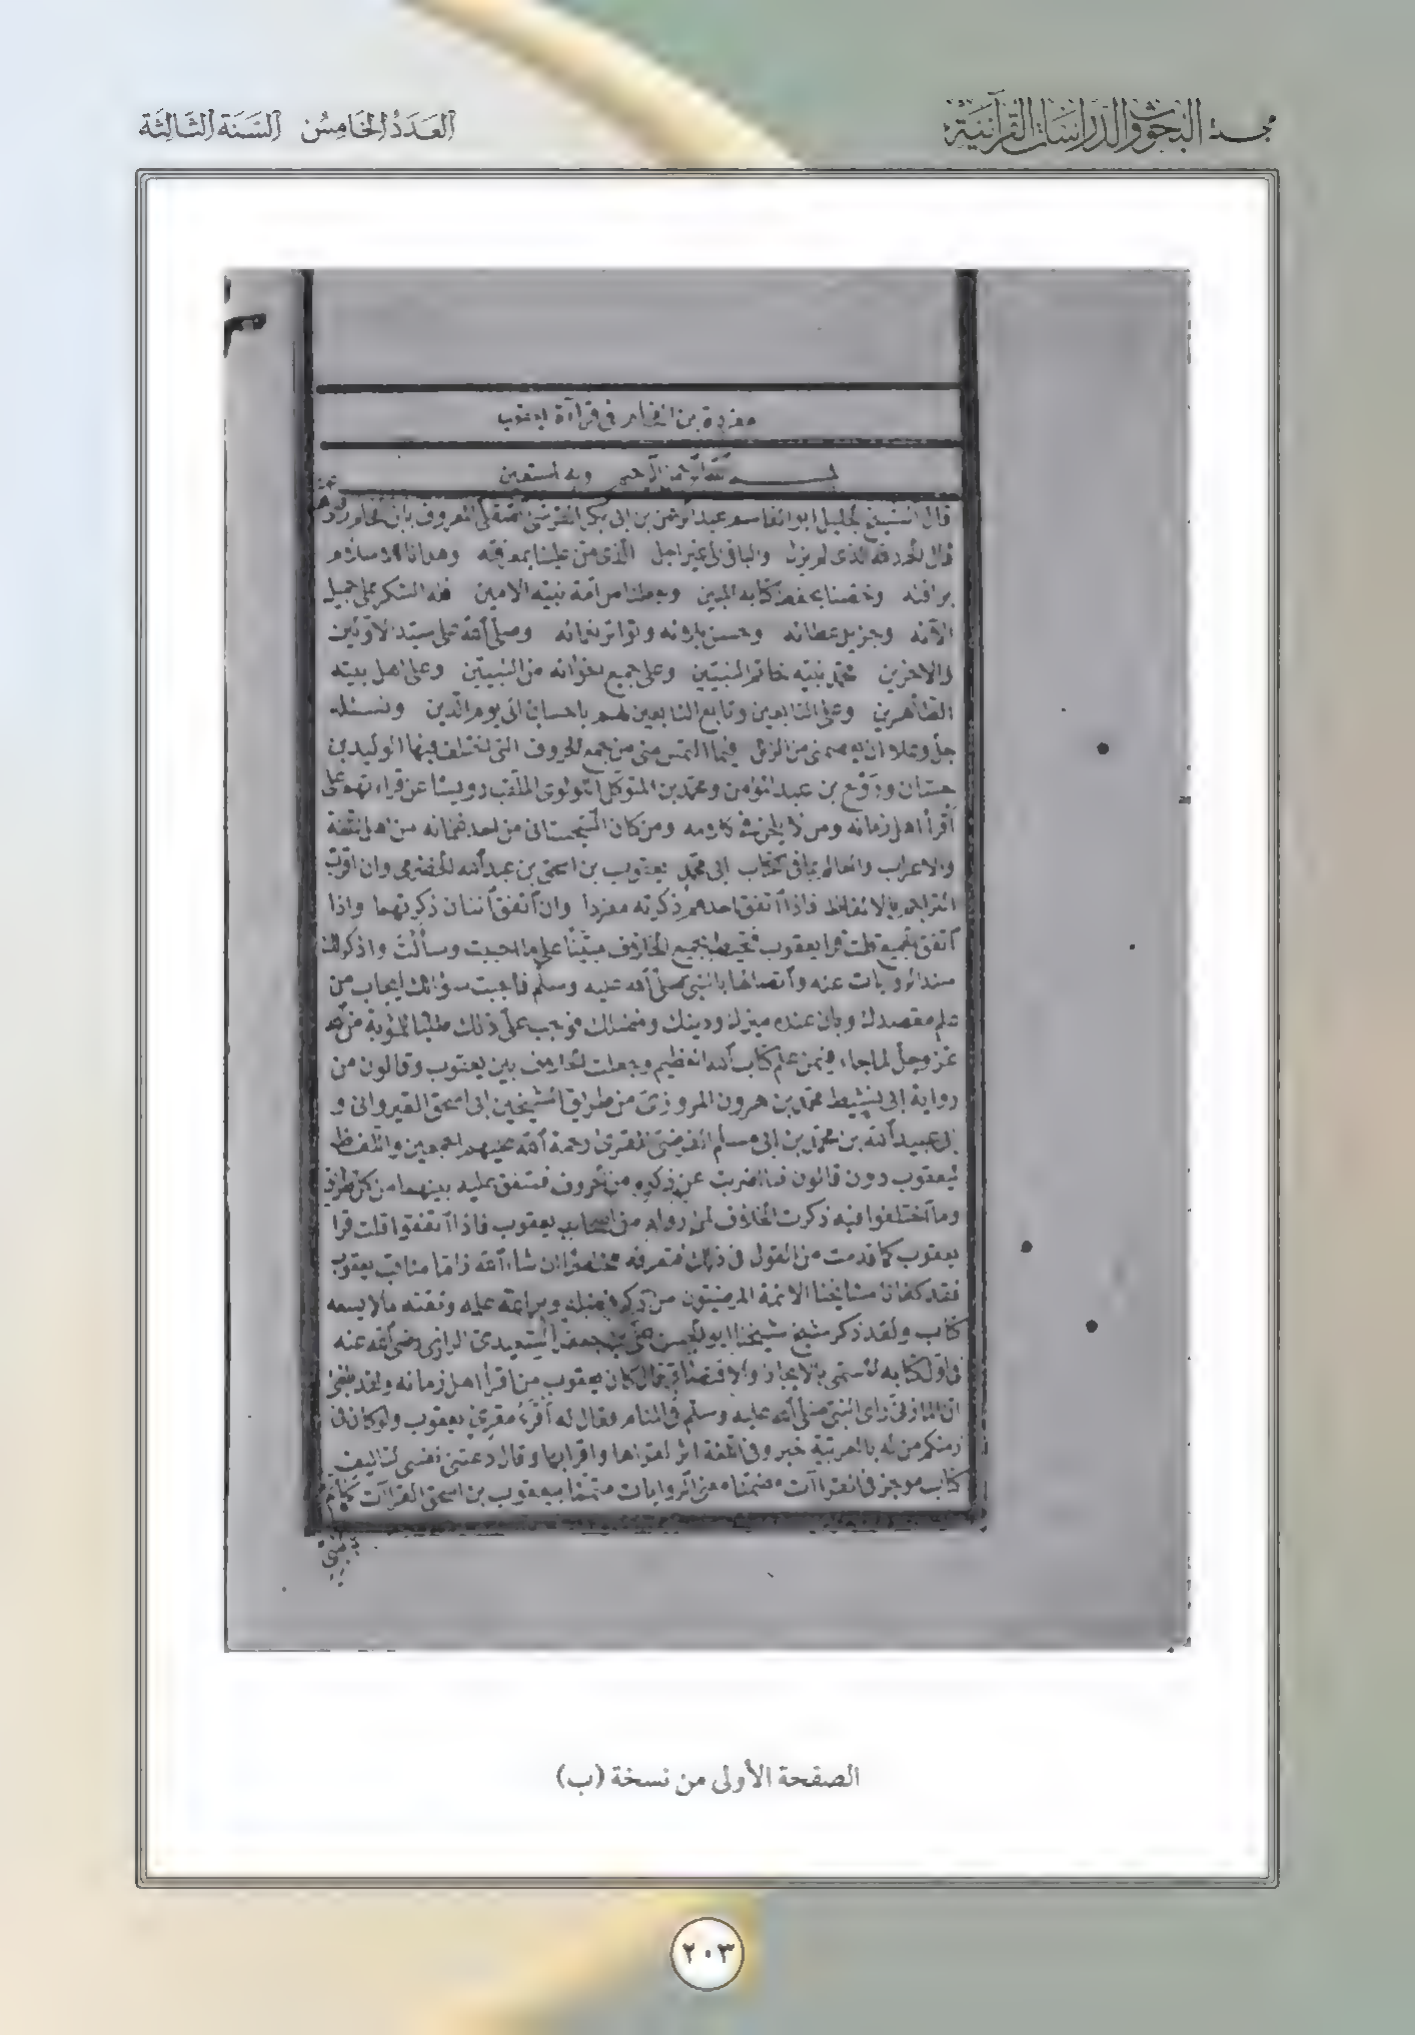 مجلة البحوث والدراسات القرآنية
العدد الخامس السنة الثالثة
مفردة بن الفحام في قراءة يعقوب
بسم الله الرحمن الرحيم وبه نستعين
قال الشيخ الجليل ابو القاسم عبد الرحمن بن ابى بكر القرشي الصقلي المعروف بابن الفحام
قال الحمد لله الذى لم يزل والباقي لغير اجل الذى من علينا بمعرفته وهدانا للاسلام
برأفته وخصنا بحفظ كتابه المبين وجعلنا من امة نبيه الامين فله الشكر على جميل
الآئه وجزيل عطائه وحسن بلائه وتواتر نعمائه وصلى الله على سيد الاولين
والاخرين محمد نبيه خاتم النبيين وعلى جميع اخوانه من النبيين وعلى اهل بيته
الطاهرين وعلى التابعين وتابع التابعين لهم باحسان الى يوم الدين ونسئله
جل وعلا ان يعصمنى من الزلل فيما التمس منى من جمع الحروف التى اختلف فيها الوليد بن
حسان وروح بن عبد المؤمن ومحمد بن المتوكل اللؤلوى الملقب رويسا عن قراءتهم على
أقرأ اهل زمانه ومن لا يلحن في كلامه ومن كان السجستانى من احد غلمانه من اهل اللغة
والاعراب والعالم بما فى الكتاب ابى محمد يعقوب بن اسحق بن عبد الله الحضرمى وان اقرب
التراجم بالالفاظ فاذا اتفق احدهم ذكرته مفردا وان اتفق اثنان ذكرتهما واذا
اتفق الجميع قلت قرا يعقوب فتحيط بجميع الخلاف مبينا على ما احببت وسألت واذكر لك
سند الروايات عنه واتصالها بالنبى صلى الله عليه وسلم فاجبت سؤالك ايجاب من
علم مقصدك وبان عنده ميزك ودينك وفضلك فوجب على ذلك طلبا للمثوبة من الله
عز وجل لما جاء فيمن علم كتاب الله العظيم وجعلت الخلاف بين يعقوب وقالون من
رواية ابى نشيط محمد بن هرون المروزى من طريق الشيخين ابى اسحق القيروانى و
ابى عبيد الله بن محمد بن ابى مسلم الفرضى المقرئ رحمة الله عليهم اجمعين واللفظ
ليعقوب دون قالون فما اضربت عن ذكره من الحروف فمتفق عليه بينهما من كل طريق
وما اختلفوا فيه ذكرت الخلاف لمن رواه من اصحاب يعقوب فاذا اتفقوا قلت قرا
يعقوب كما قدمت من القول فى ذلك فتعرفه ان شاء الله واما مناقب يعقوب
فقد كفانا مشايخنا الائمة المرضيون من ذكر فضله وبراعة علمه وثقته ما لا يسعه
كتاب ولقد ذكر شيخ شيخنا ابو الحسن على بن جعفر السعيدى الرازى رضى الله عنه
فى اول كتابه المسمى بالايجاز والاقتصار قال كان يعقوب من اقرأ اهل زمانه ولقد بلغنى
ان المازنى رأى النبى صلى الله عليه وسلم فى المنام فقال له أقرئ يعقوب ولو كان فى
زمنكم من له بالعربية خبر وفى اللغة اثر لقراها واقرا بها وقال دعتنى نفسى لتاليف
كتاب موجز فى القراآت متضمنا معنى الروايات متمما بيعقوب بن اسحق القراآت
الصفحة الأولى من نسخة (ب)
٢٠٣